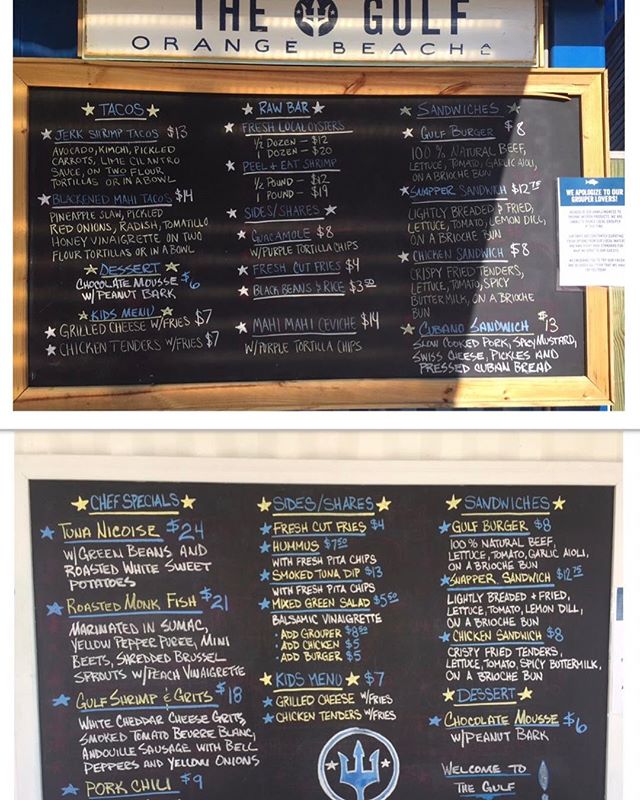 THE GULF
ORANGE BEACH
TACOS
JERK SHRIMP TACOS $13
AVOCADO, KIMCHI, PICKLED
CARROTS, LIME CILANTRO
SAUCE, ON TWO FLOUR
TORTILLAS OR IN A BOWL
BLACKENED MAHI TACOS $14
PINEAPPLE SLAW, PICKLED
RED ONIONS, RADISH, TOMATILLO
HONEY VINAIGRETTE ON TWO
FLOUR TORTILLAS OR IN A BOWL
DESSERT
CHOCOLATE MOUSSE $6
W/PEANUT BARK
KIDS MENU
GRILLED CHEESE W/FRIES $7
CHICKEN TENDERS W/FRIES $7
RAW BAR
FRESH LOCAL OYSTERS
1/2 DOZEN - $12
1 DOZEN - $20
PEEL + EAT SHRIMP
1/2 POUND - $12
1 POUND - $19
SIDES/SHARES
GUACAMOLE $8
W/PURPLE TORTILLA CHIPS
FRESH CUT FRIES $4
BLACK BEANS & RICE $3.50
MAHI MAHI CEVICHE $14
W/PURPLE TORTILLA CHIPS
SANDWICHES
GULF BURGER $8
100% NATURAL BEEF,
LETTUCE, TOMATO, GARLIC AIOLI,
ON A BRIOCHE BUN
SNAPPER SANDWICH $12.75
LIGHTLY BREADED & FRIED,
LETTUCE, TOMATO, LEMON DILL,
ON A BRIOCHE BUN
CHICKEN SANDWICH $8
CRISPY FRIED TENDERS,
LETTUCE, TOMATO, SPICY
BUTTERMILK, ON A BRIOCHE
BUN
CUBANO SANDWICH $13
SLOW COOKED PORK, SPICY MUSTARD,
SWISS CHEESE, PICKLES AND
PRESSED CUBAN BREAD
WE APOLOGIZE TO OUR
GROUPER LOVERS!
CHEF SPECIALS
TUNA NICOISE $24
W/GREEN BEANS AND
ROASTED WHITE SWEET
POTATOES
ROASTED MONK FISH $21
MARINATED IN SUMAC,
YELLOW PEPPER PUREE, MINI
BEETS, SHREDDED BRUSSEL
SPROUTS W/PEACH VINAIGRETTE
GULF SHRIMP & GRITS $18
WHITE CHEDDAR CHEESE GRITS,
SMOKED TOMATO BEURRE BLANC,
ANDOUILLE SAUSAGE WITH BELL
PEPPERS AND YELLOW ONIONS
PORK CHILI $9
SIDES/SHARES
FRESH CUT FRIES $4
HUMMUS $7.50
WITH FRESH PITA CHIPS
SMOKED TUNA DIP $13
WITH FRESH PITA CHIPS
MIXED GREEN SALAD $5.50
BALSAMIC VINAIGRETTE
· ADD GROUPER $8.50
· ADD CHICKEN $5
· ADD BURGER $5
KIDS MENU $7
GRILLED CHEESE W/FRIES
CHICKEN TENDERS W/FRIES
SANDWICHES
GULF BURGER $8
100% NATURAL BEEF,
LETTUCE, TOMATO, GARLIC AIOLI,
ON A BRIOCHE BUN
SNAPPER SANDWICH $12.75
LIGHTLY BREADED + FRIED,
LETTUCE, TOMATO, LEMON DILL,
ON A BRIOCHE BUN
CHICKEN SANDWICH $8
CRISPY FRIED TENDERS,
LETTUCE, TOMATO, SPICY BUTTERMILK,
ON A BRIOCHE BUN
DESSERT
CHOCOLATE MOUSSE $6
W/PEANUT BARK
WELCOME TO
THE GULF